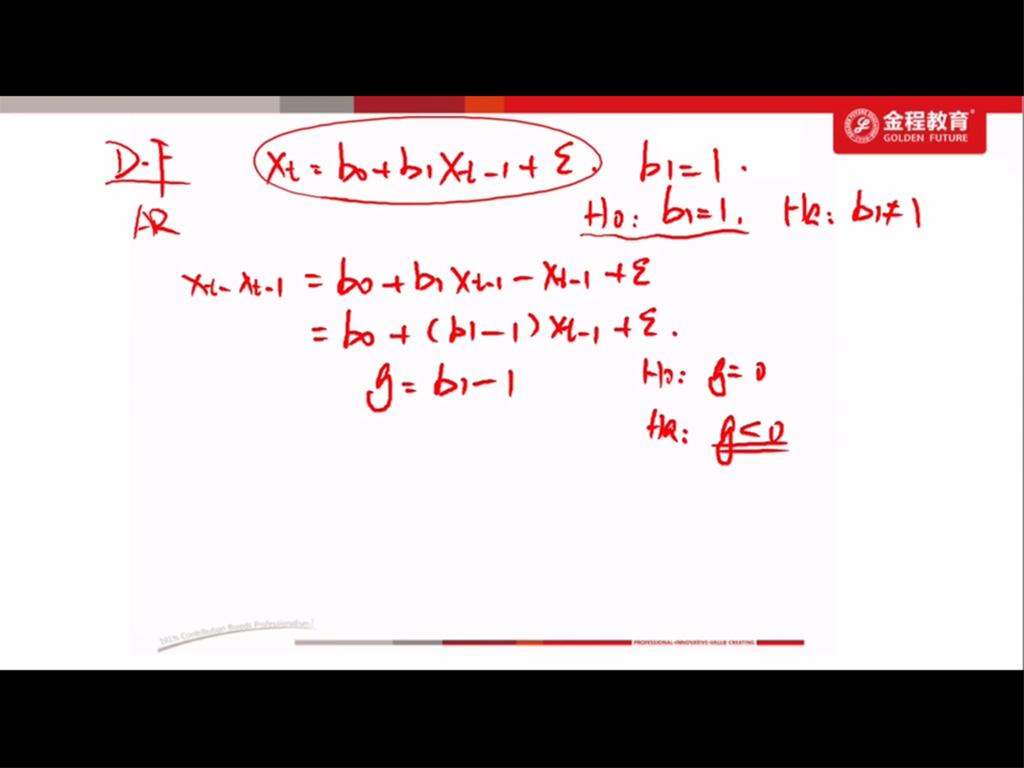 金程教育
GOLDEN FUTURE
D-F xt = b0 + b1 xt-1 + ε. b1 = 1.
AR H0: b1 = 1. Ha: b1 ≠ 1
xt - xt-1 = b0 + b1 xt-1 - xt-1 + ε
= b0 + (b1 - 1) xt-1 + ε.
g = b1 - 1 H0: g = 0
Ha: g < 0
101% Contribution Breeds Professionalism!
PROFESSIONAL·INNOVATIVE·VALUE CREATING